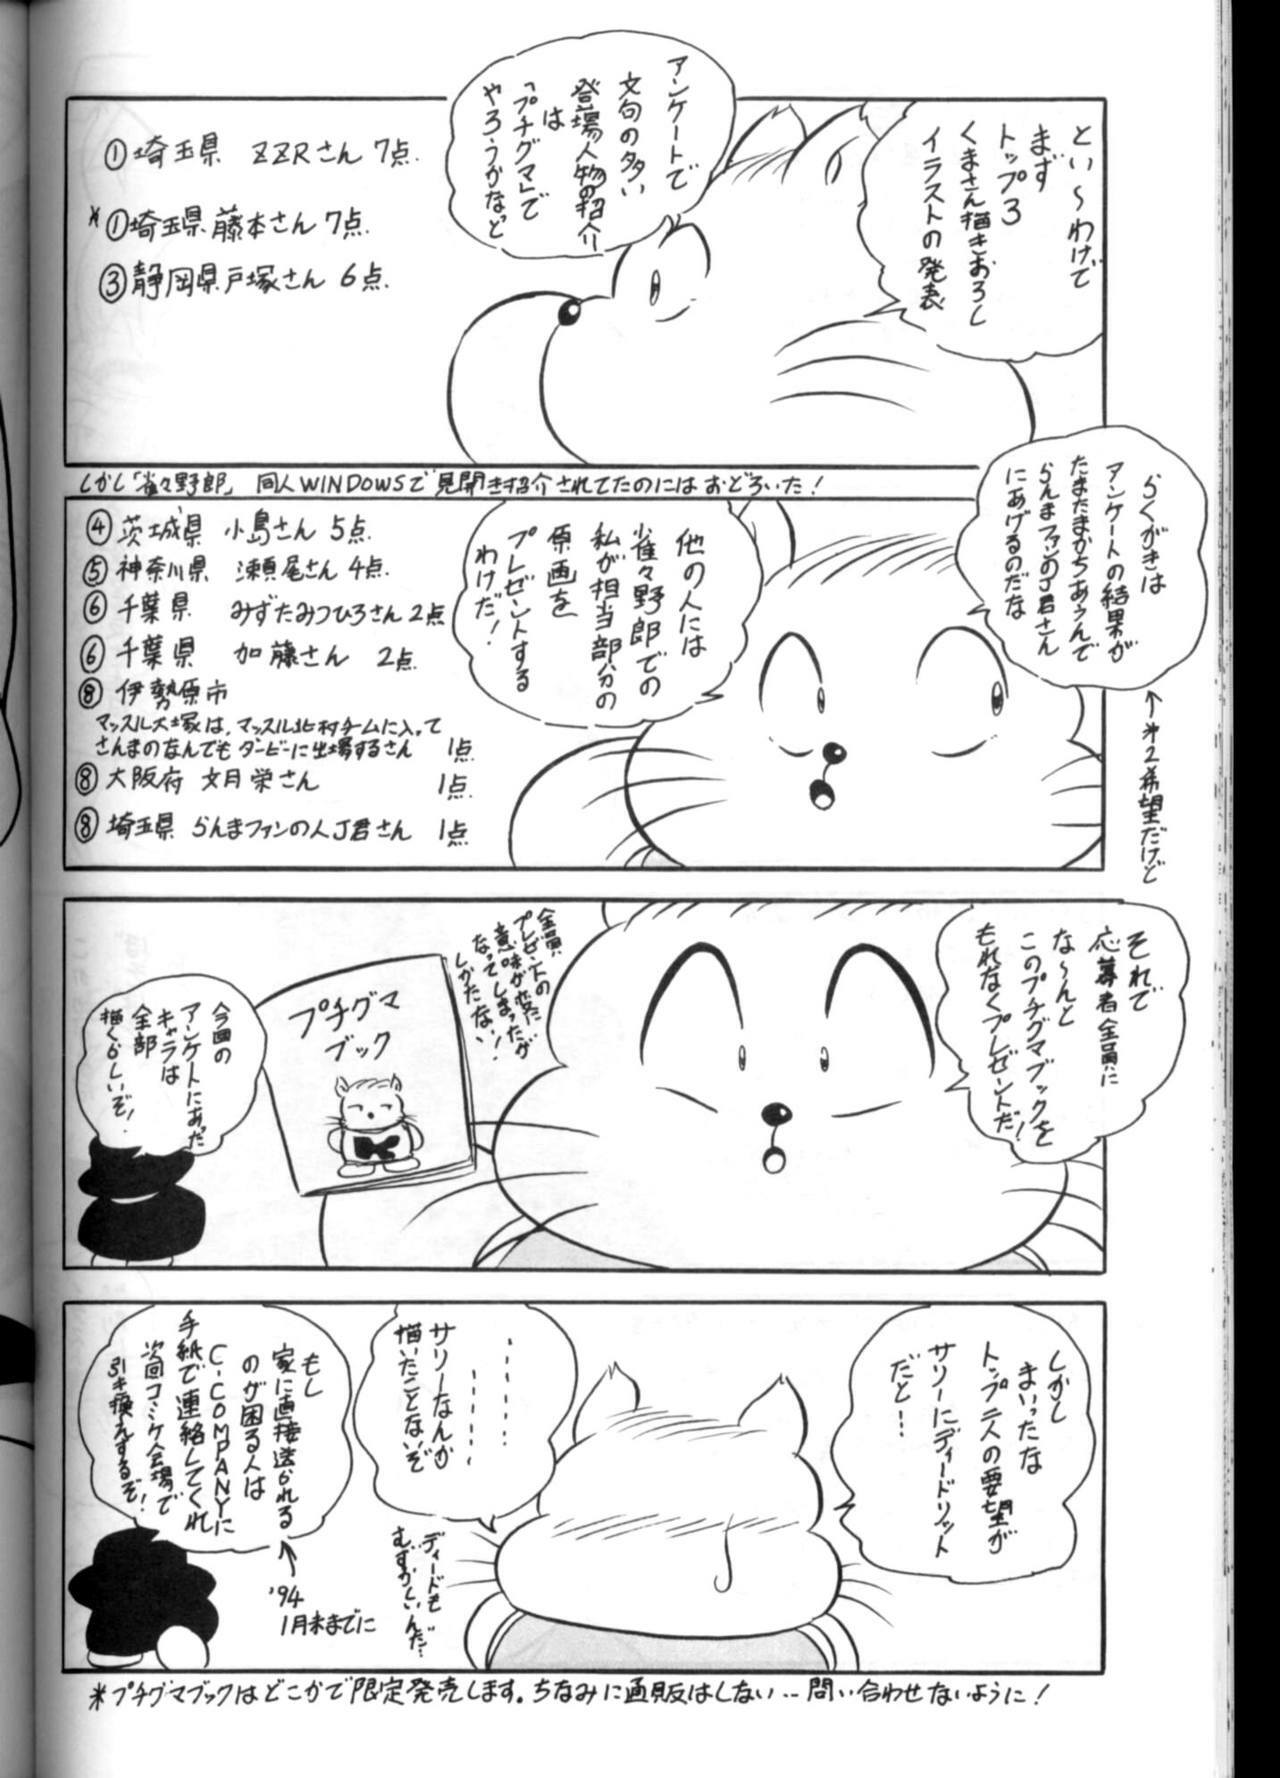 とい〜わけで
まず
トップ3
くまさん描きおろし
イラストの発表
アンケートで
文句の多い
登場人物の紹介
は
「プチグマ」で
やろうかなど
①埼玉県 ZZRさん 7点
*①埼玉県 藤本さん 7点
③静岡県 戸塚さん 6点
しかし「雀々野郎」 同人WINDOWSで見開き紹介されてたのにはおどろいた!
らくがきは
アンケートの結果が
たまたまかちあうんで
らんまファンのJ君さん
にあげるのだな
↑*2希望だけど
他の人には
雀々野郎での
私が担当部分の
原画を
プレゼントする
わけだ!
④茨城県 小島さん 5点
⑤神奈川県 瀬尾さん 4点
⑥千葉県 みずたみつひろさん 2点
⑥千葉県 加藤さん 2点
⑧伊勢原市
マッスル大塚は、マッスル北村チームに入って
さんまのなんでもダービーに出場するさん 1点
⑧大阪府 文月栄さん 1点
⑧埼玉県 らんまファンの人J君さん 1点
それで
応募者全員に
な〜んと
このプチグマブックを
もれなくプレゼントだ!
全員
プレゼントの
意味が変に
なってしまったが
しかたない!
プチグマ
ブック
今回の
アンケートにあった
キャラは
全部
描くらしいぞ!
しかし
まいったな
トップ二人の要望が
サリーにディードリット
だと…
………
………
サリーなんか
描いたことないぞ
ディードも
むずかしいんだ…
もし
家に直接送られる
のが困る人は
C-COMPANYに
手紙で連絡してくれ
次回コミケ会場で
引き換えするぞ!
↑
'94
1月末までに
*プチグマブックはどこかで限定発売します。ちなみに通販はしない…問い合わせないように!